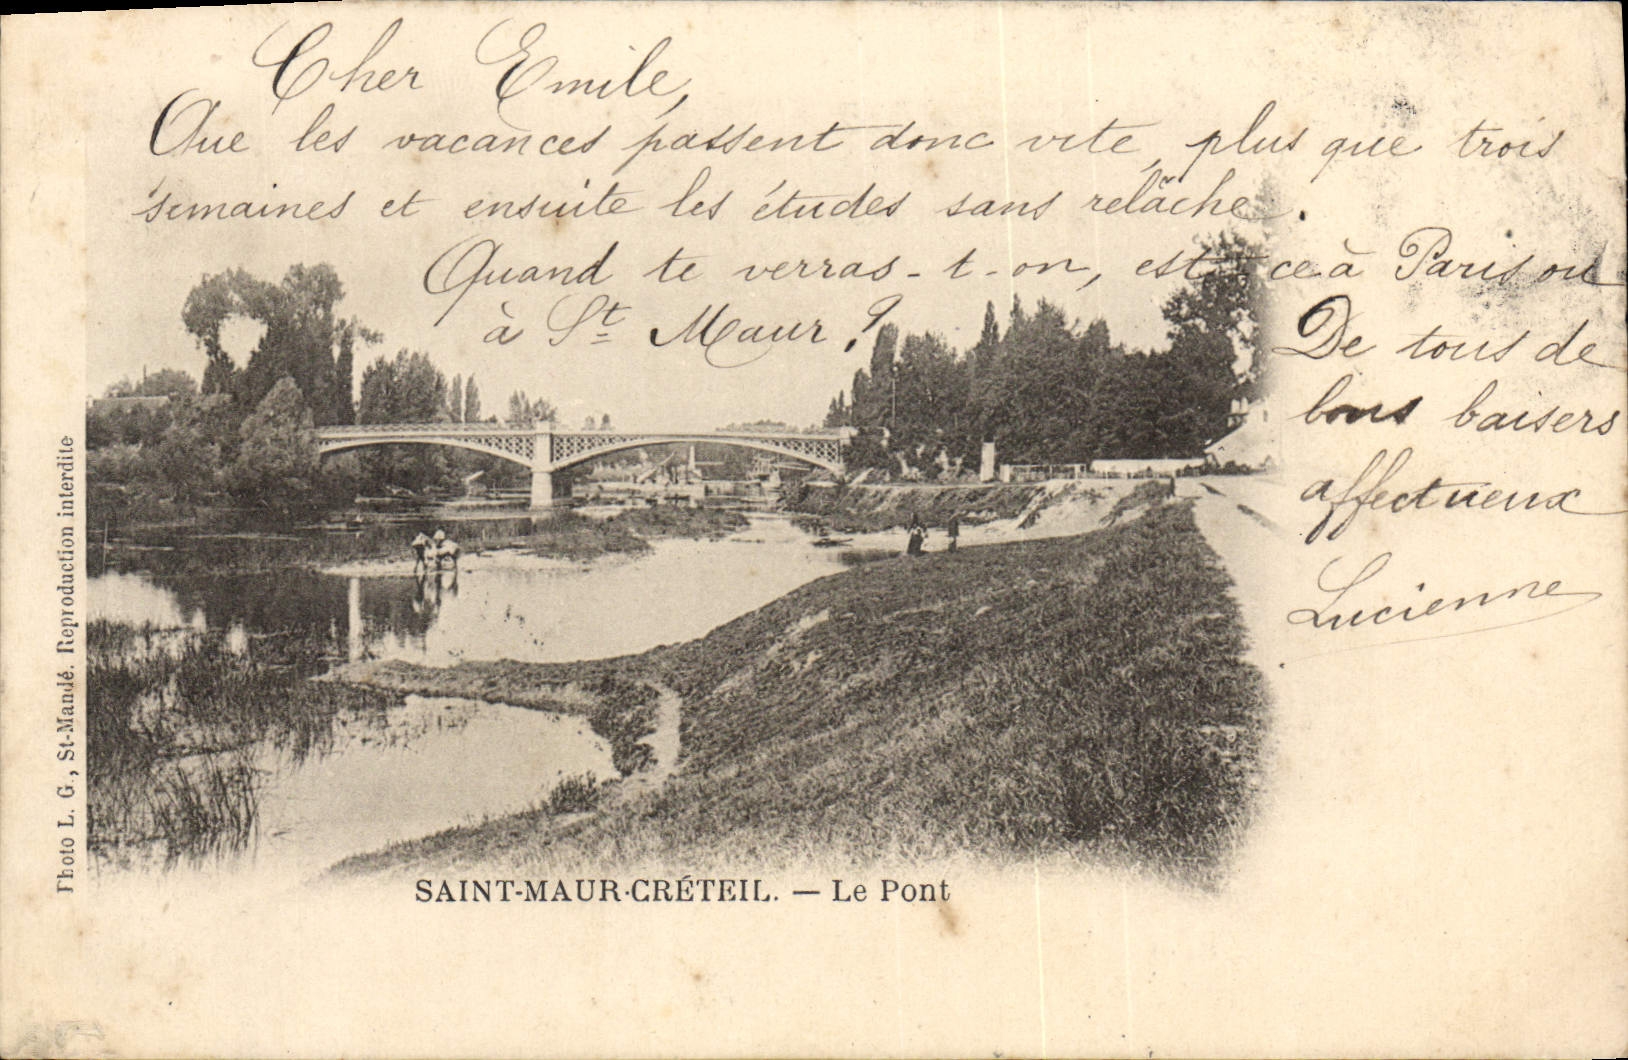 Cher Emile,
Que les vacances passent donc vite, plus que trois
semaines et ensuite les études sans relâche.
Quand te verras-t-on, est-ce à Paris ou
à St Maur ?
De tous de
bons baisers
affectueux
Lucienne
Photo L. G., St-Mandé. Reproduction interdite
SAINT-MAUR-CRÉTEIL. — Le Pont